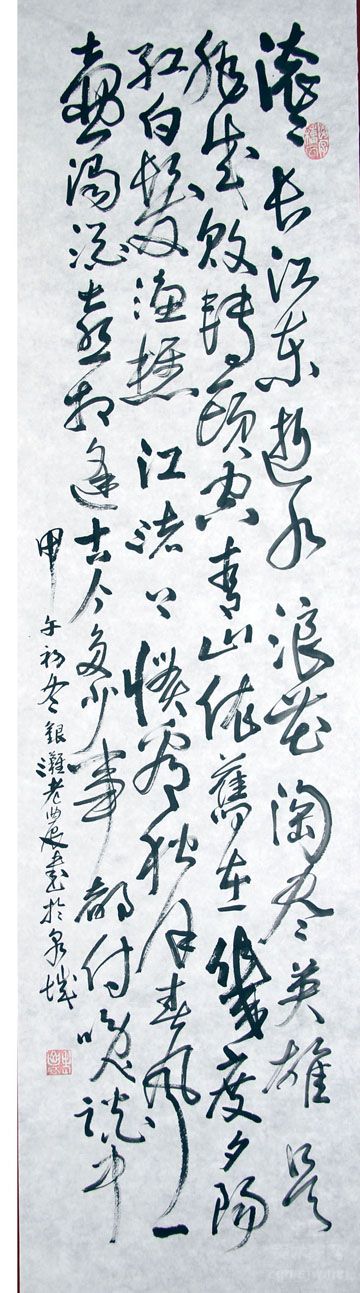 滚滚长江东逝水浪花淘尽英雄是
非成败转头空青山依旧在几度夕阳
红白发渔樵江渚上惯看秋月春风一
壶浊酒喜相逢古今多少事都付笑谈中
甲午初冬银滩老曲晨书于泉城